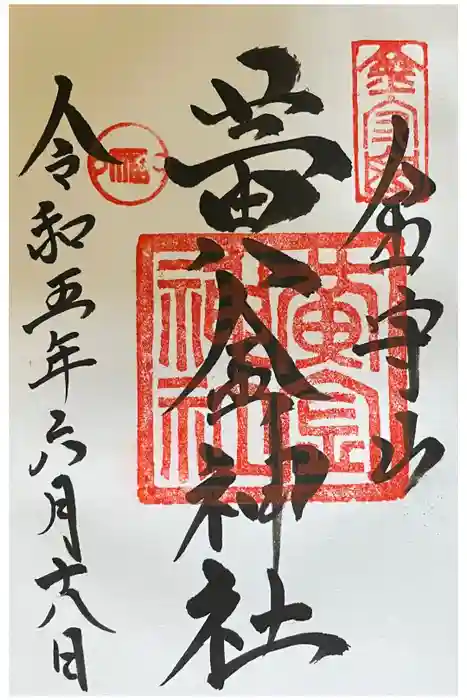 金守山
黄金神社
令和五年六月十八日
金守山
黄金
神社